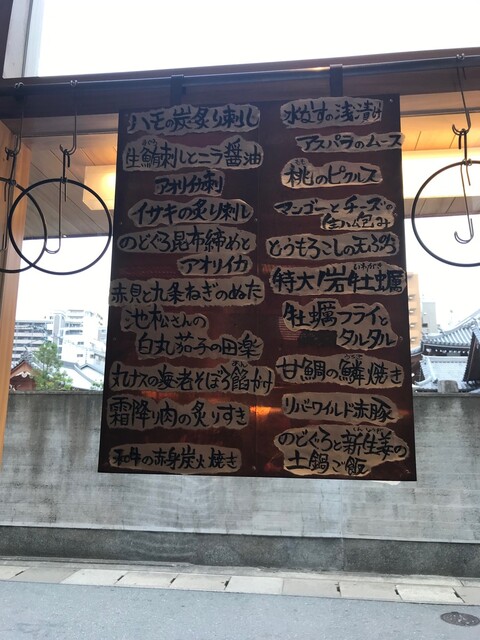 ハモの炭炙り刺し
生鯖刺しとニラ醤油
アオリイカ刺
イサキの炙り刺し
のどぐろ昆布締めと
アオリイカ
赤貝と九条ねぎのぬた
池松さんの
白丸茄子の田楽
丸ナスの海老そぼろ餡かけ
霜降り肉の炙りすき
和牛の赤身炭火焼き
水なすの浅漬け
アスパラのムース
桃のピクルス
マンゴーとチーズの
生ハム包み
とうもろこしの天ぷら
特大!岩牡蠣
牡蠣フライと
タルタル
甘鯛の鱗焼き
リバーワイルド赤豚
のどぐろと新生姜の
土鍋ご飯